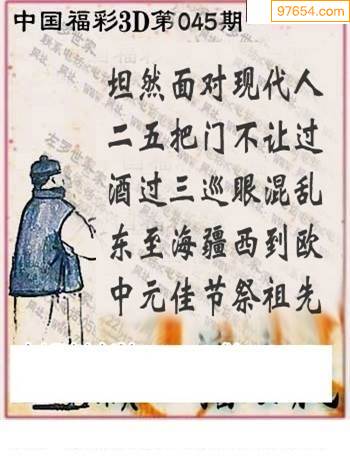 中国福彩3D第045期
97654.com
坦然面对现代人
二五把门不让过
酒过三巡眼混乱
东至海疆西到欧
中元佳节祭祖先